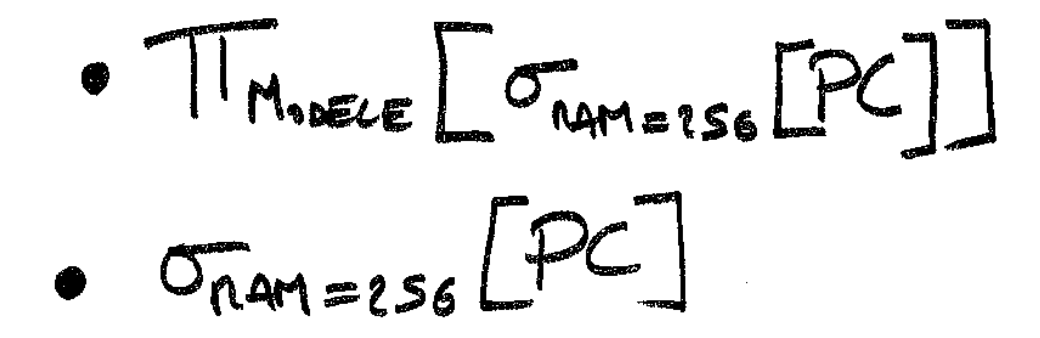 • Π MODELE [σ RAM=256 [PC]]
• σ RAM=256 [PC]